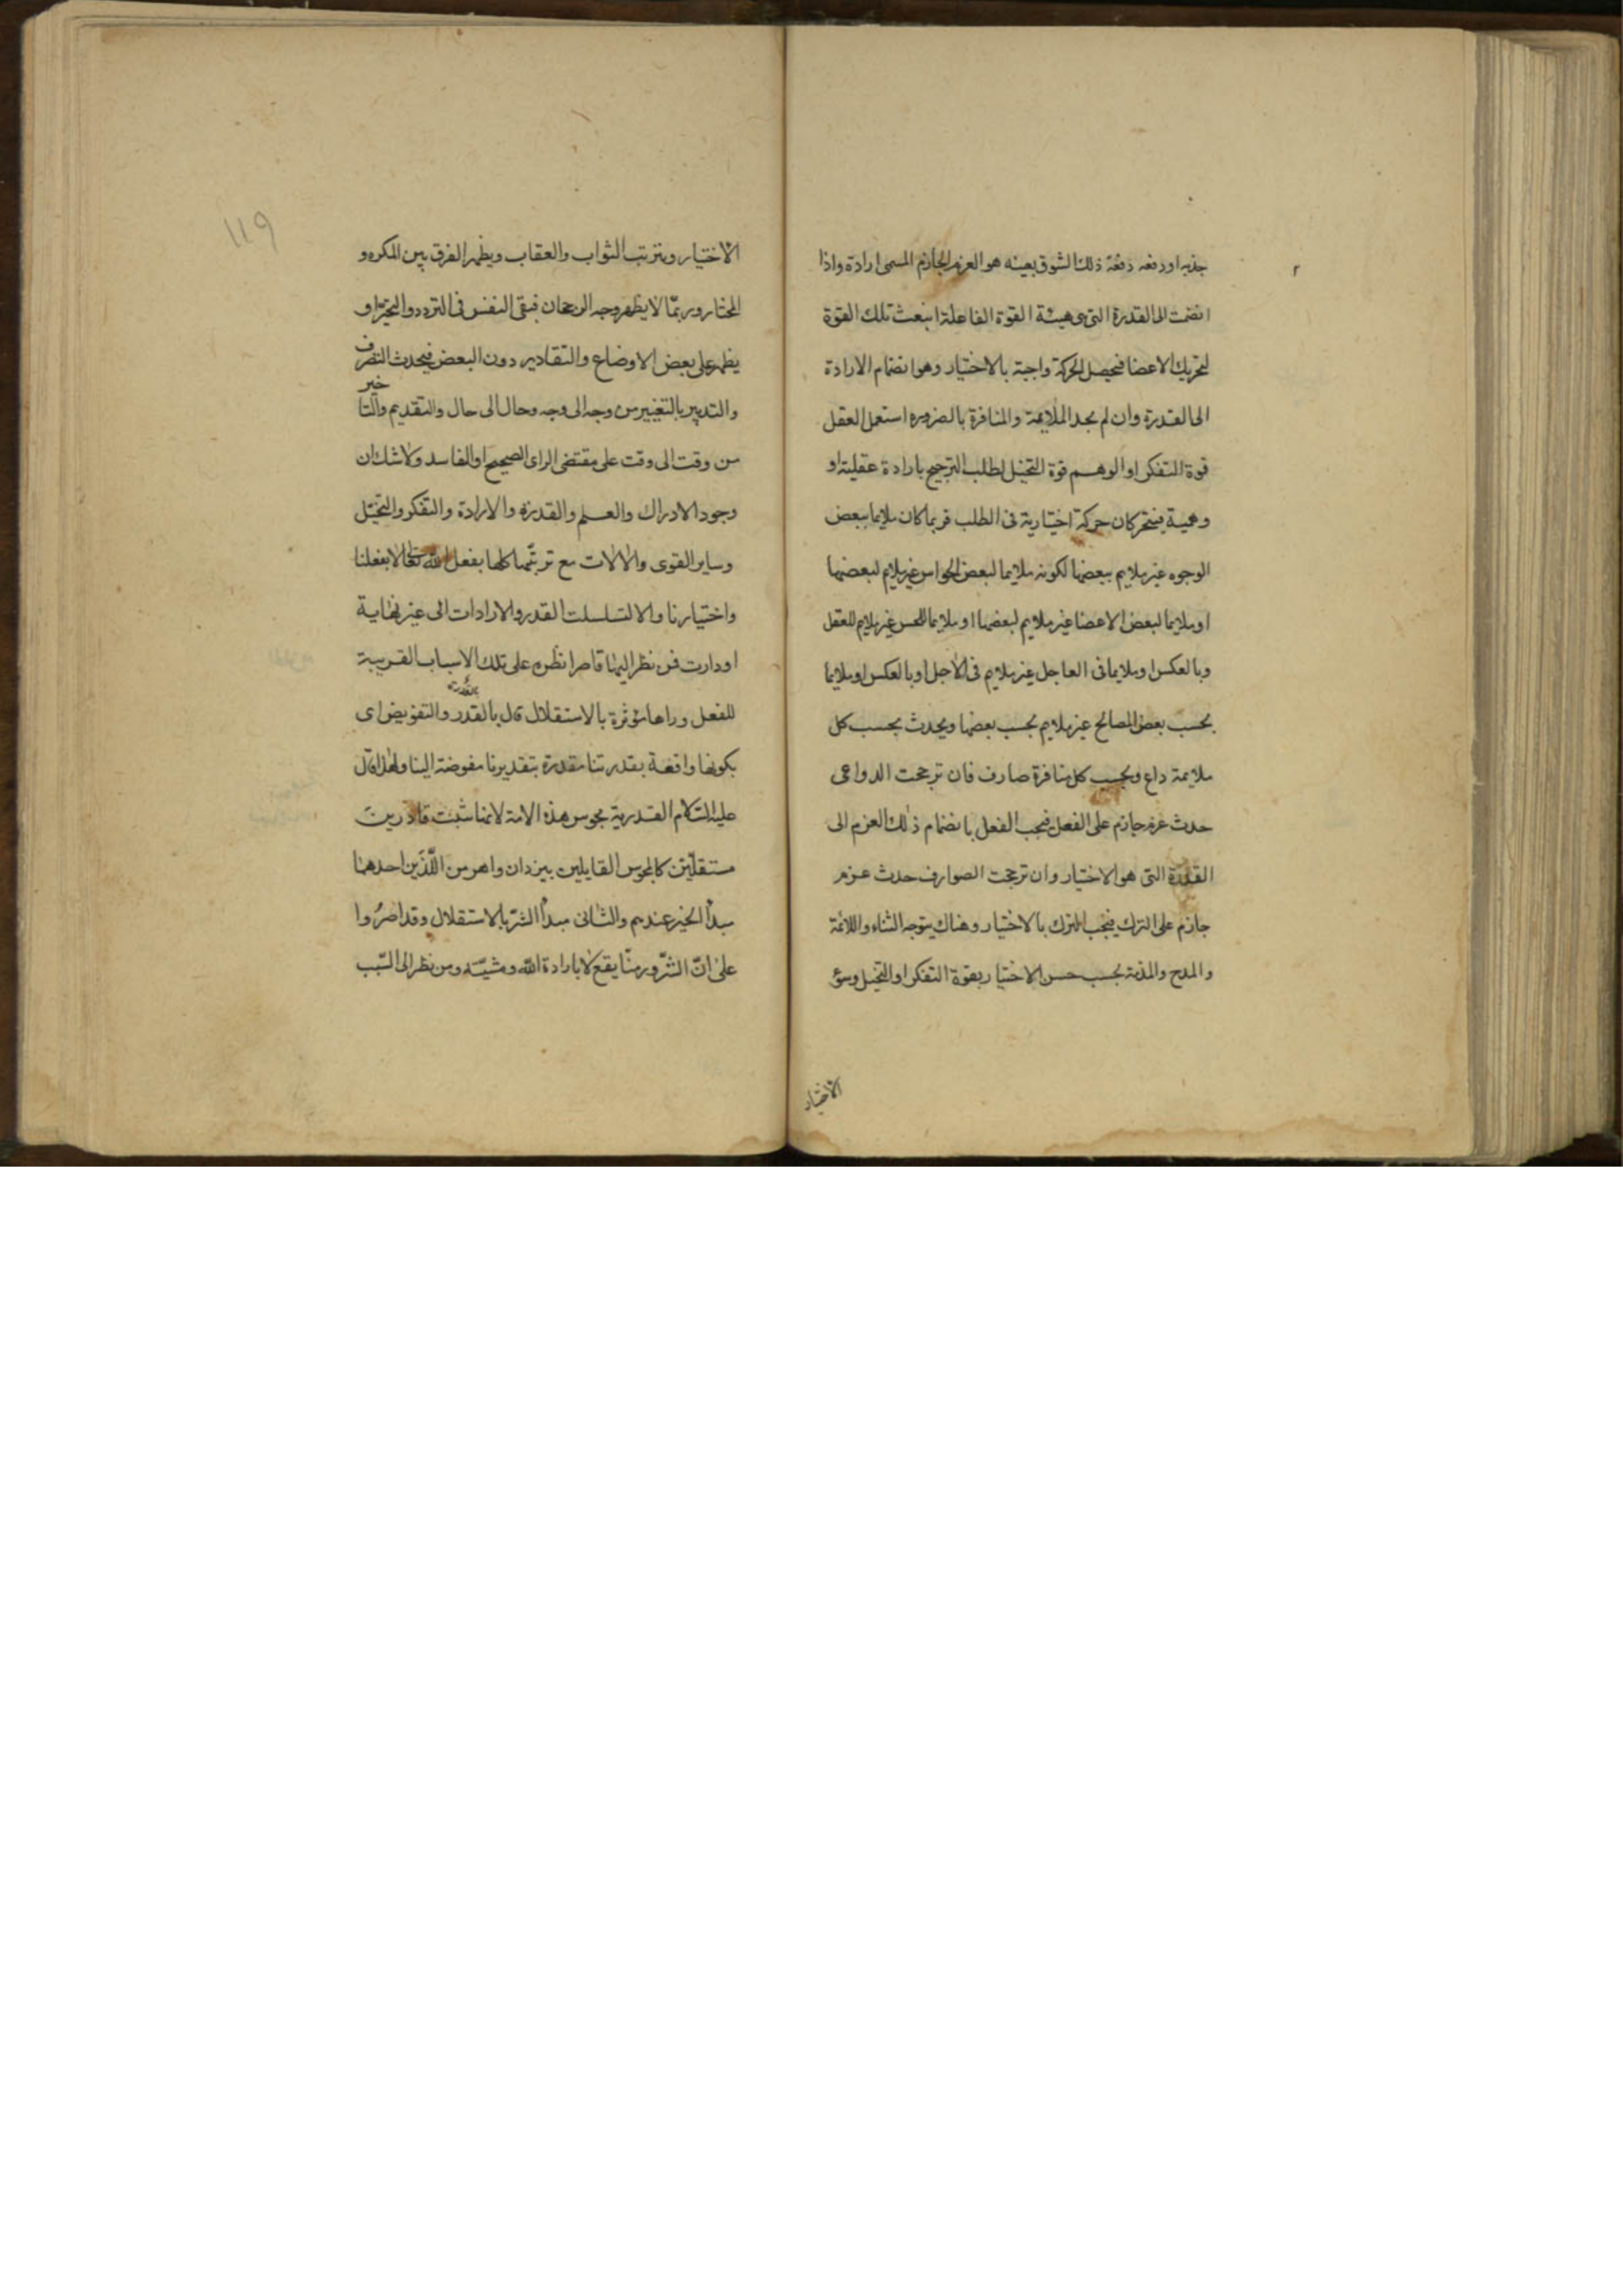 جذبه او دفعه دفعة ذلك الشوق بعينه هو العزم الجازم المسمى ارادة واذا
انضمت الى القدرة التى هى هيئة القوة الفاعلة انبعث تلك القوة
لتحريك الاعضا فيحصل الحركة واجبة بالاختيار وهو انضمام الارادة
الى القدرة وان لم يجد الملايمة والمنافرة بالضروره استعمل العقل
قوة التفكر او الوهم قوة التخيل لطلب الترجيح بارادة عقلية او
وهمية فيتحركان حركة اختيارية فى الطلب فربما كان ملايما ببعض
الوجوه غير ملايم ببعضها لكونه ملايما لبعض الحواس غير ملايم لبعضها
او ملايما لبعض الاعضا غير ملايم لبعضها او ملايما للحس غير ملايم للعقل
وبالعكس او ملايما فى العاجل غير ملايم فى الاجل او بالعكس او ملايما
بحسب بعض المصالح غير ملايم بحسب بعضها ويحدث بحسب كل
ملايمة داع وبحسب كل منافرة صارف فان ترجحت الدواعى
حدث عزم جازم على الفعل فيجب الفعل بانضمام ذلك العزم الى
القدرة التى هو الاختيار وان ترجحت الصوارف حدث عزم
جازم على الترك فيجب الترك بالاختيار وهناك يتوجه الثناء واللائمة
والمدح والمذمة بحسب حسن الاختيار بقوة التفكر او التخيل وسؤ
الاختيار
١١٩
الاختيار ويترتب الثواب والعقاب ويظهر الفرق بين المكره و
المختار وربمّا لا يظهر وجه الرجحان فيبقى النفس فى التردد والتحيّر او
يظهر على بعض الاوضاع والتقادير دون البعض فيحدث التصرف
والتدبير بالتغيير من وجه الى وجه وحال الى حال والتقديم والتاخير
من وقت الى وقت على مقتضى الراى الصحيح او الفاسد ولا شك ان
وجود الادراك والعلم والقدرة والارادة والتفكر والتخيّل
وساير القوى والالات مع ترتبّها كلها بفعل الله تعالى لا بفعلنا
واختيارنا والا لتسلسلت القدر والارادات الى غير نهاية
او دارت فمن نظر اليها قاصرا نظره على تلك الاسباب القريبة
للفعل وراها مؤثرة بالاستقلال قال بالقدر والتفويض اى
بكونها واقعة بقدرتنا مقدرة بتقديرنا مفوضة الينا ولهذا قال
عليه السّلام القدرية مجوس هذه الامة لانها تثبت قادرين
مستقلّين كالمجوس القايلين بيزدان واهرمن اللّذَين احدهما
مبدأ الخير عندهم والثانى مبدأ الشرّ بالاستقلال وقد اصرُوا
على انّ الشرّور منّا يقع لا بارادة الله ومشيّته ومن نظر الى السّبب